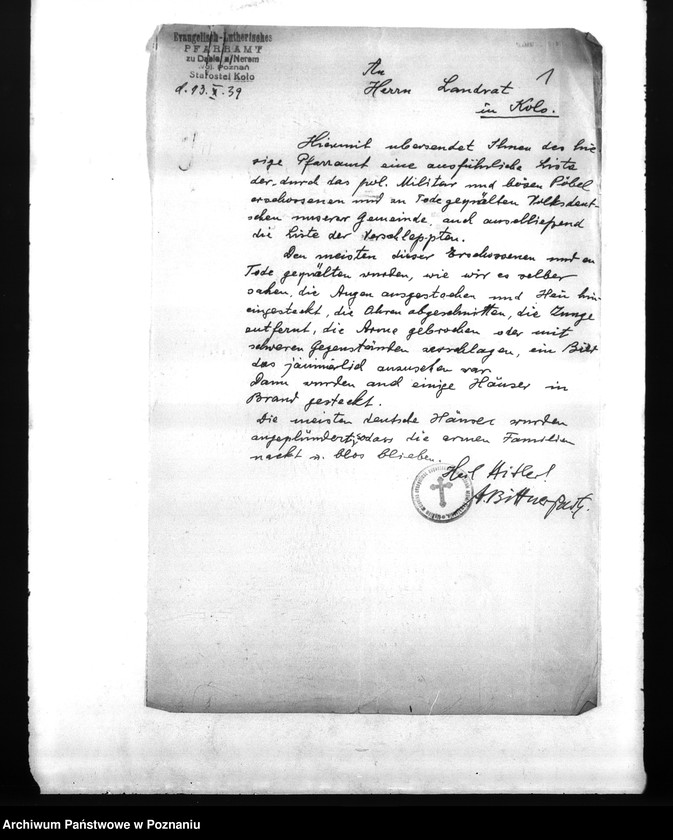 Evangelisch-Lutherisches
PFARRAMT
zu Dąbie n/Nerem
Woj. Poznań
Starostei Koło
d. 13. X. 39
1
An
Herrn Landrat
in Kolo.
Hiermit übersendet Ihnen des hie-
sige Pfarramt eine ausführliche Liste
der, durch das pol. Militär und bösen Pöbel
erschossenen und zu Tode gequälten Volksdeut-
schen unserer Gemeinde, auch anschließend
die Liste der Verschleppten.
Den meisten dieser Erschossenen und zu
Tode gequälten wurden, wie wir es selber
sahen, die Augen ausgestochen und Heu hin-
eingesteckt, die Ohren abgeschnitten, die Zunge
entfernt, die Arme gebrochen oder mit
schweren Gegenständen zerschlagen, ein Bild
das jämmerlich anzusehen war.
Dann wurden auch einige Häuser in
Brand gesteckt.
Die meisten deutsche Häuser wurden
ausgeplündert, sodass die armen Familien
nackt u. blos blieben.
Heil Hitler!
A. Bittner
Archiwum Państwowe w Poznaniu